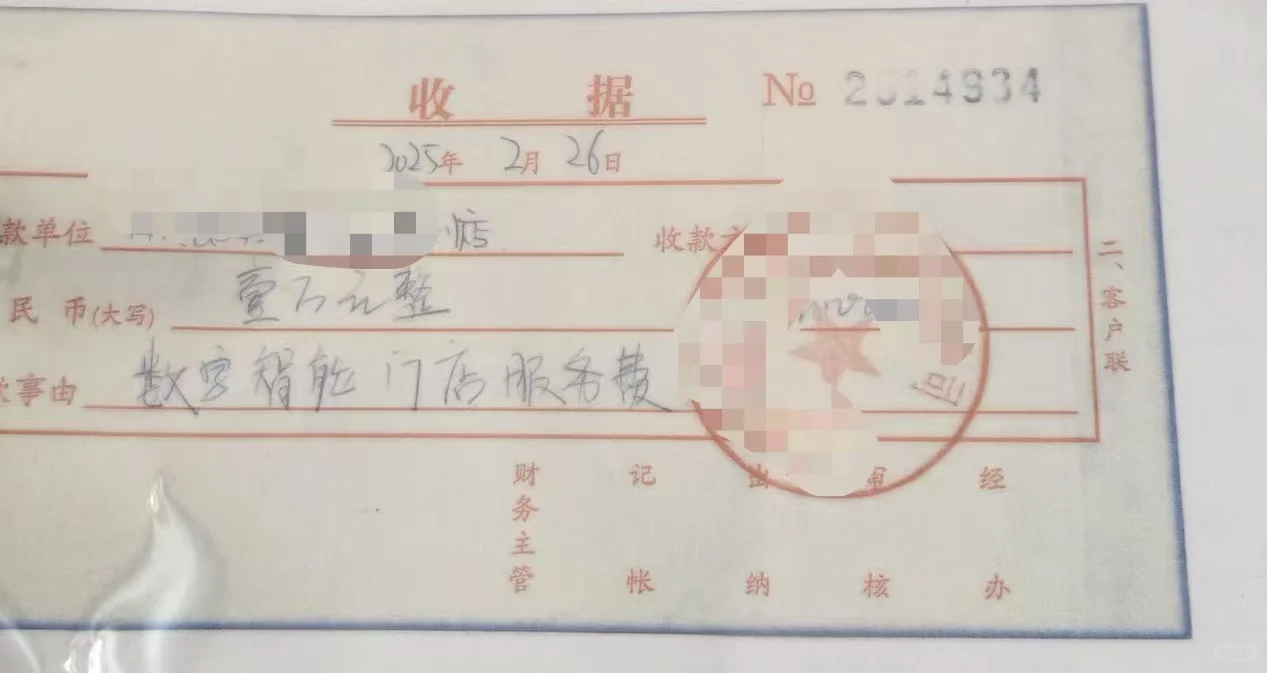 收据 No 2014934
2025年 2月 26日
款单位 店 收款方
民币(大写) 壹万元整
款事由 数字智能门店服务费
司
二、客户联
财务主管 记帐 出纳 审核 经办